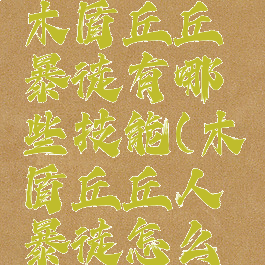 木盾丘丘
暴徒有哪
些技能(木
盾丘丘人
暴徒怎么